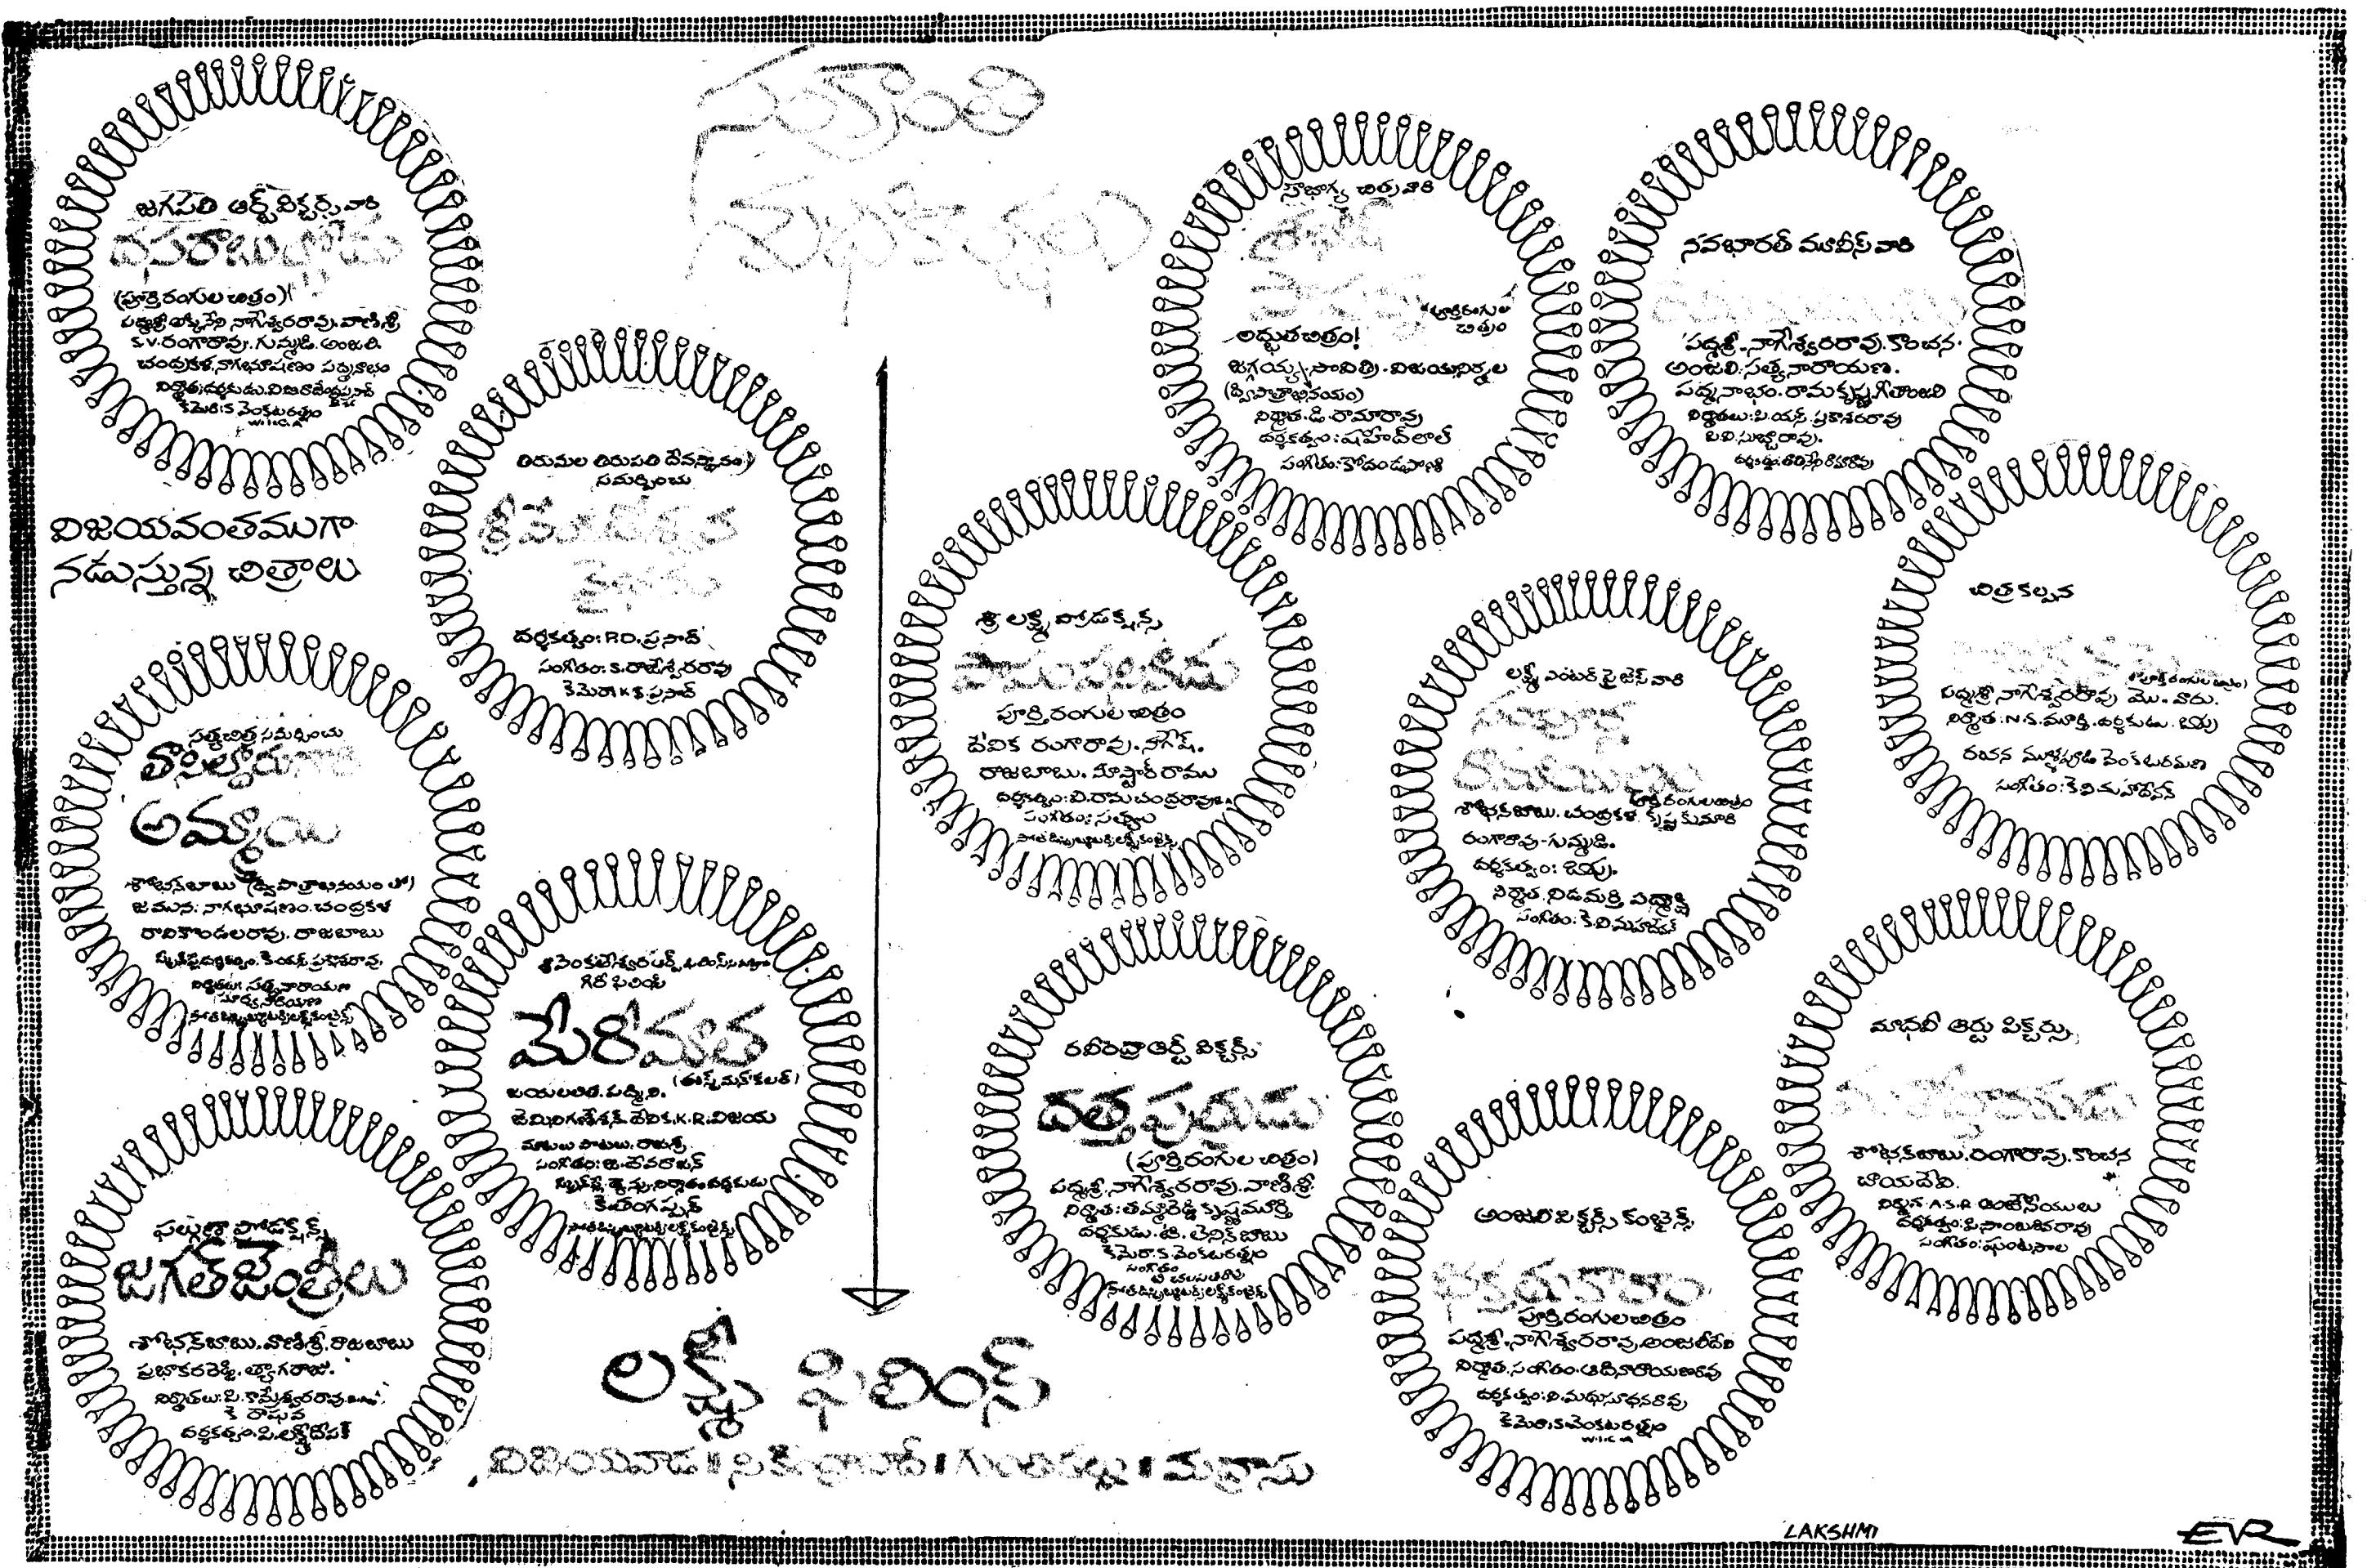 సంక్రాంతి
శుభాకాంక్షలు
జగపతి ఆర్ట్ పిక్చర్స్ వారి
దసరాబుల్లోడు
(పూర్తి రంగుల చిత్రం)
పద్మశ్రీ అక్కినేని నాగేశ్వరరావు. వాణిశ్రీ
S.V. రంగారావు. గుమ్మడి. అంజలి.
చంద్రకళ. నాగభూషణం పద్మనాభం
నిర్మాత, దర్శకుడు. వి.బి. రాజేంద్రప్రసాద్
కెమెరా: S. వెంకటరత్నం
W.I.C.A
విజయవంతముగా
నడుస్తున్న చిత్రాలు
తిరుమల తిరుపతి దేవస్థానం
సమర్పించు
శ్రీవేంకటేశ్వర
వైభవము
దర్శకత్వం: P.D. ప్రసాద్
సంగీతం: S. రాజేశ్వరరావు
కెమెరా K.S. ప్రసాద్
సత్యచిత్ర సమర్పించు
తాసిల్దారుగారి
అమ్మాయి
శోభన్ బాబు (ద్విపాత్రాభినయం తో)
జమున. నాగభూషణం. చంద్రకళ
రావికొండలరావు. రాజబాబు
స్క్రీన్ ప్లే దర్శకత్వం. కె.యస్. ప్రకాశరావు
నిర్మాతలు: సత్యనారాయణ
సూర్యనారాయణ
శ్రీ వెంకటేశ్వర ఆర్ట్ ఫిలింస్
గిరీ ఫిలింస్
మేరీమాత
(ఈస్ట్ మన్ కలర్)
జయలలిత. పద్మిని.
జెమినిగణేశన్. దేవిక. K.R. విజయ
మాటలు పాటలు. రాజశ్రీ
సంగీతం: జి. దేవరాజన్
కె. తంగప్పన్
ఫల్గుణా ప్రొడక్షన్స్
జగత్‌జెంత్రీలు
శోభన్ బాబు. వాణిశ్రీ. రాజబాబు
ప్రభాకరరెడ్డి. త్యాగరాజు.
నిర్మాతలు: పి. కామేశ్వరరావు
కె రాఘవ
దర్శకత్వం. పి. లక్ష్మీదీపక్
సౌభాగ్య చిత్ర వారి
పూర్తిరంగుల
చిత్రం
అద్భుతచిత్రం!
జగ్గయ్య. సావిత్రి. విజయనిర్మల
(ద్విపాత్రాభినయం)
నిర్మాత. డి. రామారావు
దర్శకత్వం: షహీద్ లాల్
సంగీతం: కోదండపాణి
నవభారత్ మూవీస్ వారి
పద్మశ్రీ. నాగేశ్వరరావు. కాంచన.
అంజలి. సత్యనారాయణ.
పద్మనాభం. రామకృష్ణ. గీతాంజలి
నిర్మాతలు: పి. యస్. ప్రకాశరరావు
పి.వి. సుబ్బారావు.
దర్శకత్వం: తాతినేని రామారావు
శ్రీ లక్ష్మి ప్రొడక్షన్స్
పూర్తి రంగుల చిత్రం
దేవిక రంగారావు. నాగేష్.
రాజబాబు. మాస్టార్ రాము
దర్శకత్వం: వి. రామచంద్రరావు
సంగీతం: సత్యం
లక్ష్మీ ఎంటర్ ప్రైజెస్ వారి
సంపూర్ణ
రామాయణం
పూర్తి రంగుల చిత్రం
శోభన్ బాబు. చంద్రకళ. కృష్ణకుమారి
రంగారావు - గుమ్మడి.
దర్శకత్వం: బాపు.
నిర్మాత. నిడమర్తి పద్మాక్షి
సంగీతం: కె.వి. మహదేవన్
చిత్రకల్పన
(పూర్తి రంగుల చిత్రం)
పద్మశ్రీ నాగేశ్వరరావు మొ. వారు.
నిర్మాత: N.S. మూర్తి. దర్శకుడు. బాపు
రచన ముళ్ళపూడి వెంకటరమణ
సంగీతం: కె.వి. మహదేవన్
రవీంద్రా ఆర్ట్ పిక్చర్స్
దత్తపుత్రుడు
(పూర్తిరంగుల చిత్రం)
పద్మశ్రీ. నాగేశ్వరరావు. వాణిశ్రీ
నిర్మాత: తమ్మారెడ్డి కృష్ణమూర్తి
దర్శకుడు. టి. లెనిన్ బాబు
కెమెరా. S. వెంకటరత్నం
సంగీతం
టి చలపతిరావు
మాధవీ ఆర్టు పిక్చర్సు
శోభన్ బాబు. రంగారావు. కాంచన
ఛాయదేవి.
నిర్మాత. A.S.R. ఆంజనేయులు
దర్శకత్వం: పి. సాంబశివరావు
సంగీతం: ఘంటసాల
అంజలి పిక్చర్స్ కంబైన్స్
భక్తతుకారాం
పూర్తిరంగుల చిత్రం
పద్మశ్రీ. నాగేశ్వరరావు. అంజలీదేవి
నిర్మాత. సంగీతం. ఆదినారాయణరావు
దర్శకత్వం: వి. మధుసూధనరావు
కెమెరా. S. వెంకటరత్నం
W.I.C.A
లక్ష్మీ ఫిలింస్
విజయవాడ * సికింద్రాబాద్ * గుంతకల్లు * మద్రాసు
LAKSHMI
EVR